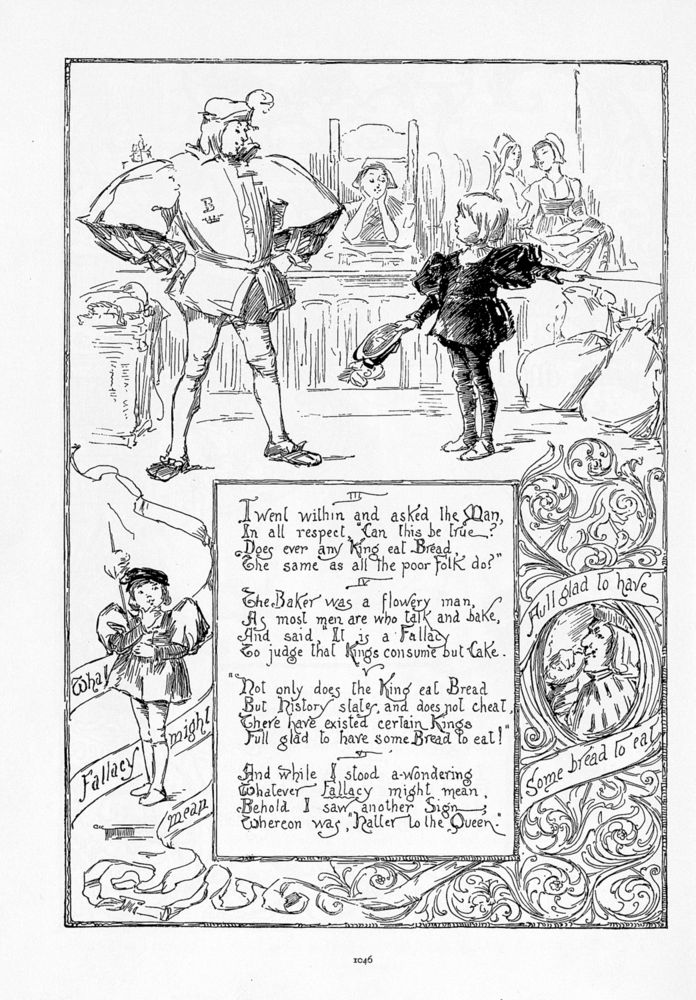 B
III
I went within and asked the Man,
In all respect, "Can this be true?
Does ever any King eat Bread,
The same as all the poor folk do?"
IV
The Baker was a flowery man,
As most men are who talk and bake,
And said, "It is a Fallacy
To judge that Kings consume but Cake.
V
"Not only does the King eat Bread
But History states, and does not cheat,
There have existed certain Kings
Full glad to have some Bread to eat!"
VI
And while I stood a-wondering
Whatever Fallacy might mean,
Behold I saw another Sign;
Whereon was, "Hatter to the Queen."
What
Fallacy
might
mean
Full glad to have
Some bread to eat
1046